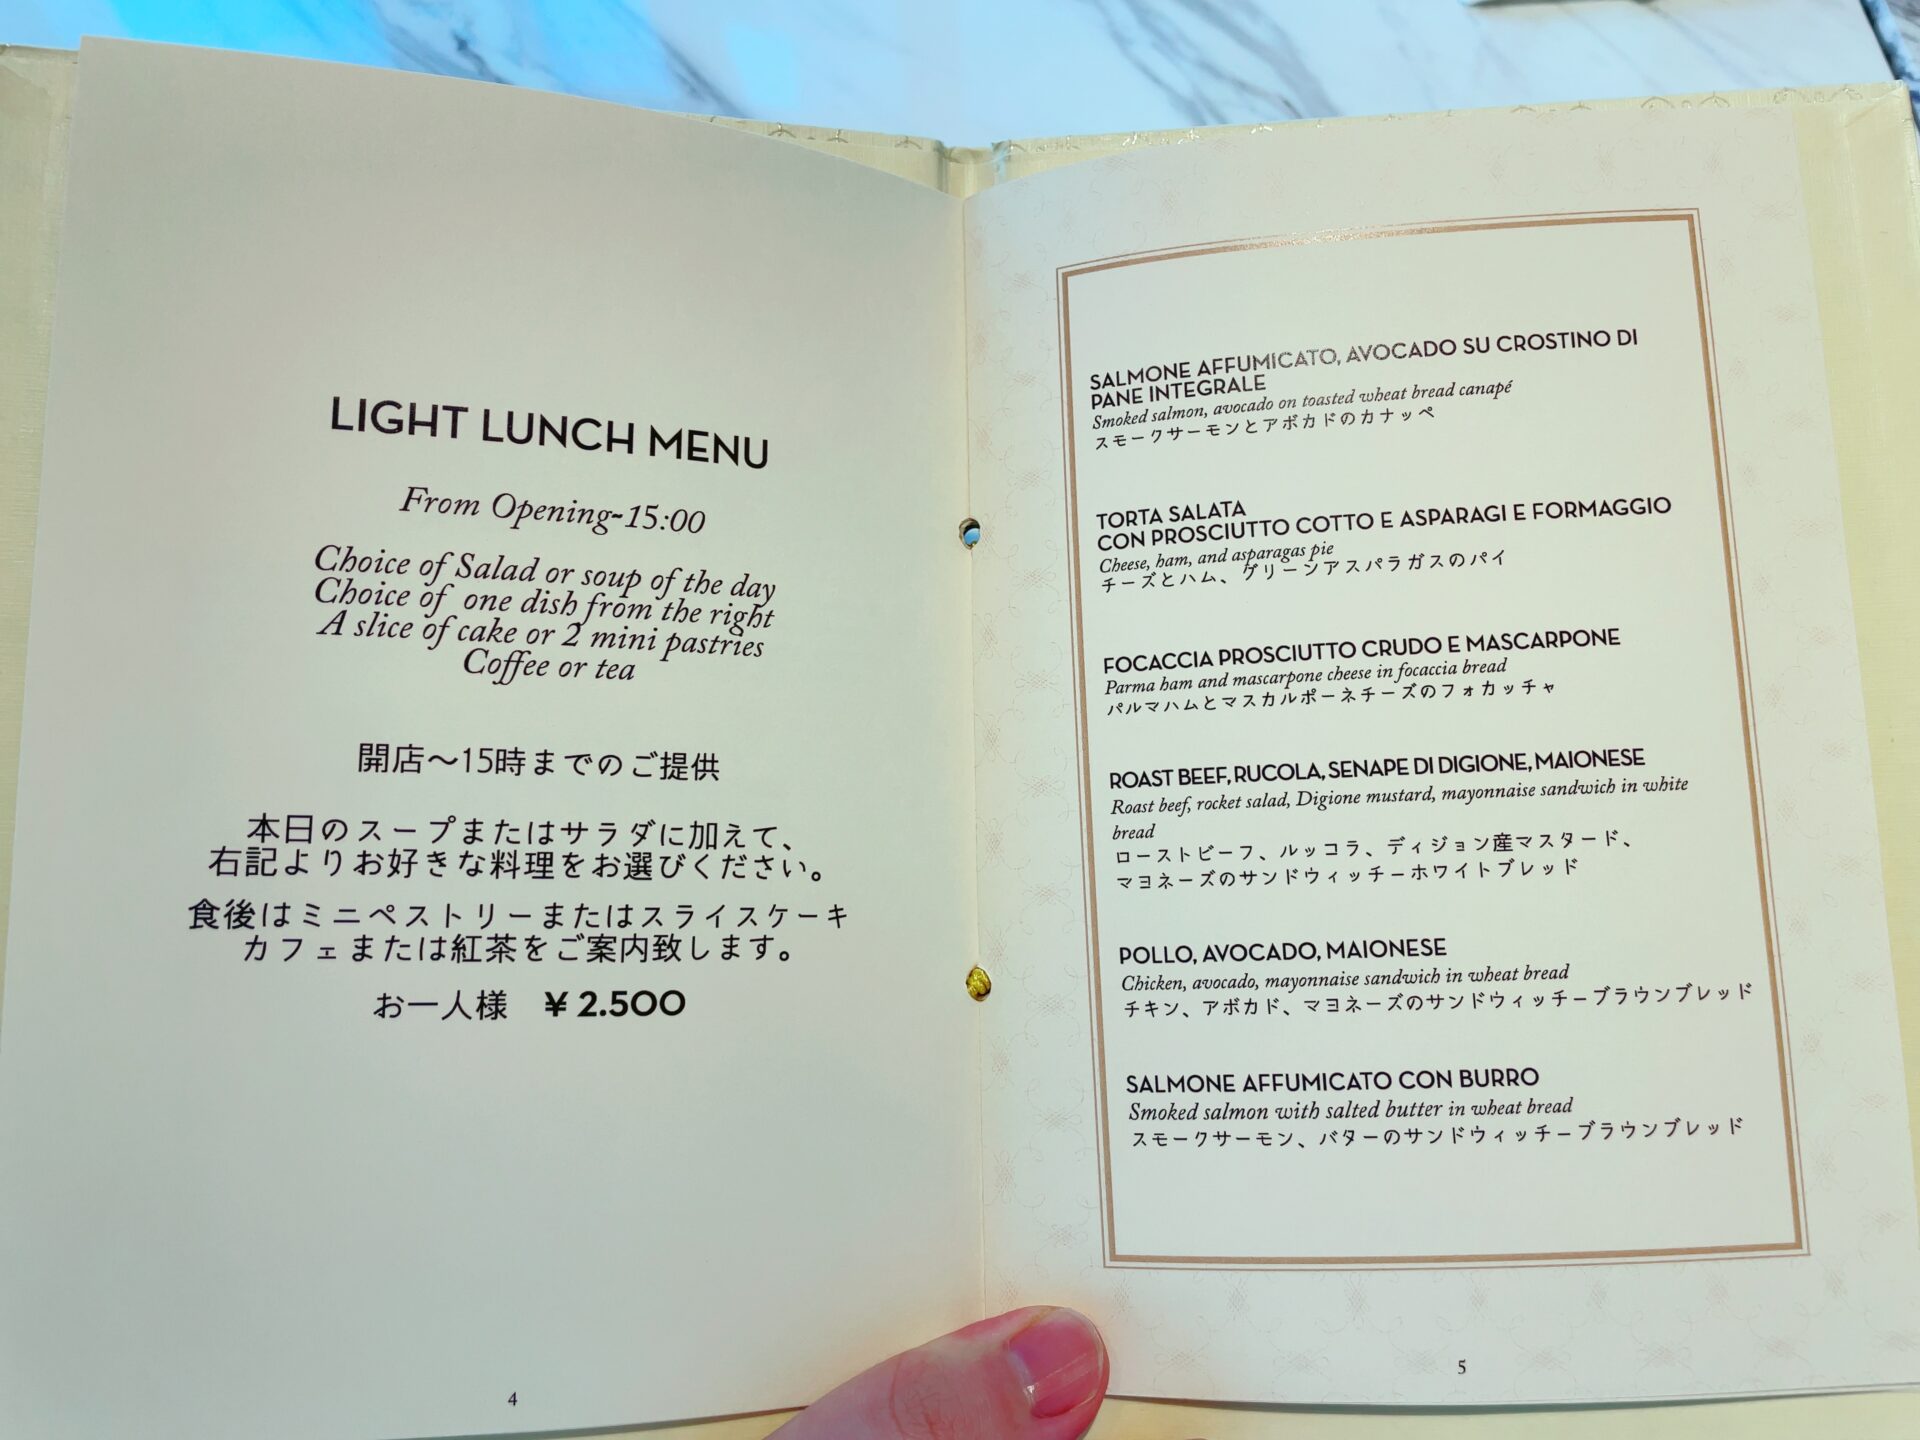 LIGHT LUNCH MENU
From Opening~15:00
Choice of Salad or soup of the day
Choice of one dish from the right
A slice of cake or 2 mini pastries
Coffee or tea
開店〜15時までのご提供
本日のスープまたはサラダに加えて、
右記よりお好きな料理をお選びください。
食後はミニペストリーまたはスライスケーキ
カフェまたは紅茶をご案内致します。
お一人様 ￥2.500
4
SALMONE AFFUMICATO, AVOCADO SU CROSTINO DI
PANE INTEGRALE
Smoked salmon, avocado on toasted wheat bread canapé
スモークサーモンとアボカドのカナッペ
TORTA SALATA
CON PROSCIUTTO COTTO E ASPARAGI E FORMAGGIO
Cheese, ham, and asparagus pie
チーズとハム、グリーンアスパラガスのパイ
FOCACCIA PROSCIUTTO CRUDO E MASCARPONE
Parma ham and mascarpone cheese in focaccia bread
パルマハムとマスカルポーネチーズのフォカッチャ
ROAST BEEF, RUCOLA, SENAPE DI DIGIONE, MAIONESE
Roast beef, rocket salad, Digione mustard, mayonnaise sandwich in white
bread
ローストビーフ、ルッコラ、ディジョン産マスタード、
マヨネーズのサンドウィッチーホワイトブレッド
POLLO, AVOCADO, MAIONESE
Chicken, avocado, mayonnaise sandwich in wheat bread
チキン、アボカド、マヨネーズのサンドウィッチーブラウンブレッド
SALMONE AFFUMICATO CON BURRO
Smoked salmon with salted butter in wheat bread
スモークサーモン、バターのサンドウィッチーブラウンブレッド
5